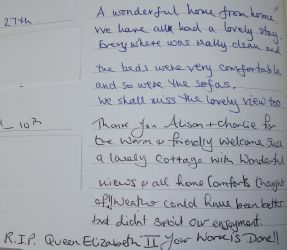 27th
A wonderful home from home,"
We have all had a lovely stay.
Everywhere was really clean and
the beds were very comfortable
and so were the sofas.
We shall miss the lovely view too.
10th
Thank you Alison + Charlie for
the warm & friendly welcome such
a lovely cottage with wonderful
views & all home comforts thought
of!! Weather could have been better
but didnt spoil our enjoyment.
R.I.P. Queen Elizabeth II your work is Done!!